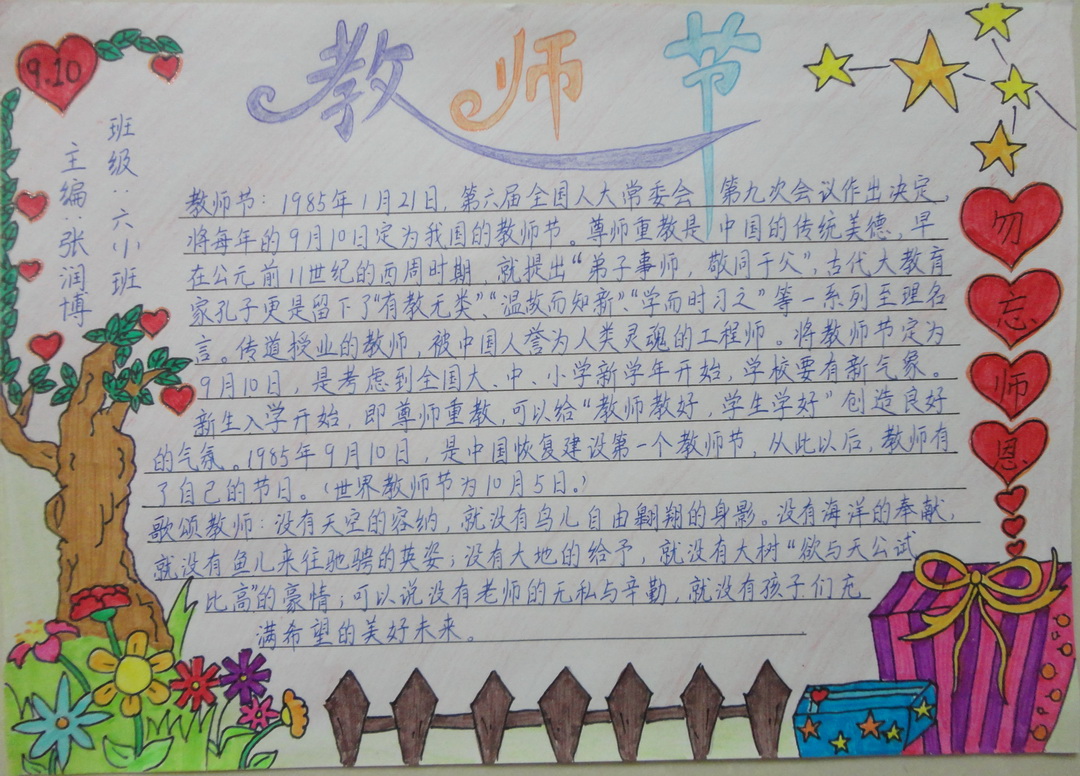 教师节
9.10
班级：六小班
主编：张润博
教师节：1985年1月21日，第六届全国人大常委会 第九次会议作出决定，
将每年的9月10日定为我国的教师节。尊师重教是中国的传统美德，早
在公元前11世纪的西周时期，就提出“弟子事师，敬同于父”，古代大教育
家孔子更是留下了“有教无类”、“温故而知新”、“学而时习之”等一系列至理名
言。传道授业的教师，被中国人誉为人类灵魂的工程师。将教师节定为
9月10日，是考虑到全国大、中、小学新学年开始，学校要有新气象。
新生入学开始，即尊师重教，可以给“教师教好，学生学好”创造良好
的气氛。1985年9月10日，是中国恢复建设第一个教师节，从此以后，教师有
了自己的节日。（世界教师节为10月5日。）
歌颂教师：没有天空的容纳，就没有鸟儿自由翱翔的身影。没有海洋的奉献，
就没有鱼儿来往驰骋的英姿；没有大地的给予，就没有大树“欲与天公试
比高”的豪情；可以说没有老师的无私与辛勤，就没有孩子们充
满希望的美好未来。
勿
忘
师
恩